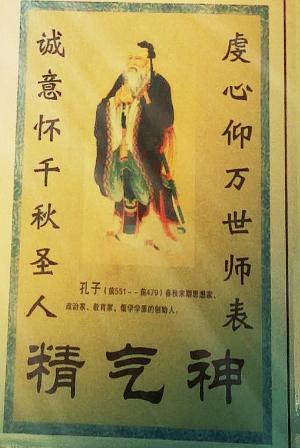 虔心仰万世师表
诚意怀千秋圣人
孔子（前551--前479）春秋末期思想家、
政治家、教育家、儒学学派的创始人。
精气神